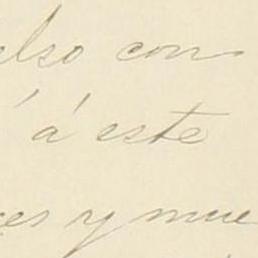 elso con
á este
ces y mue